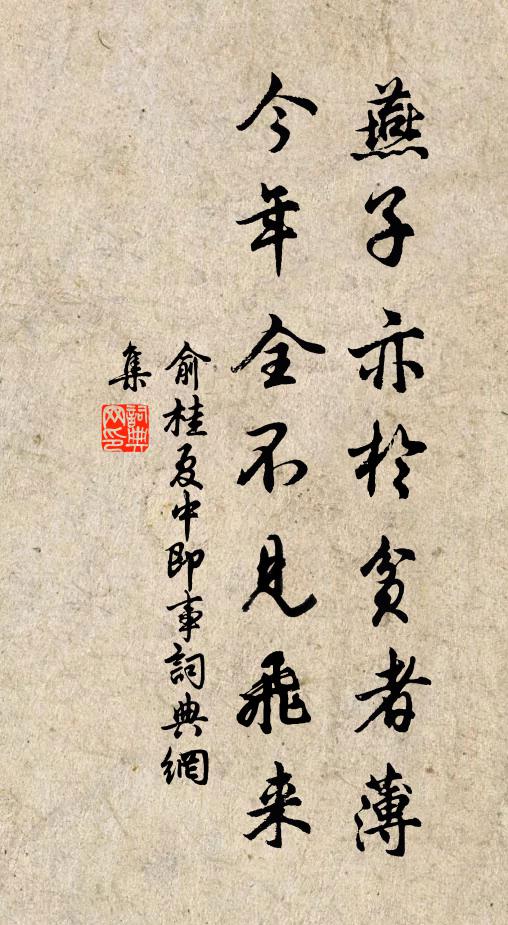 燕子亦於贫者薄
今年全不见飛来
俞桂夏中即事詞典網
集
詞典网印